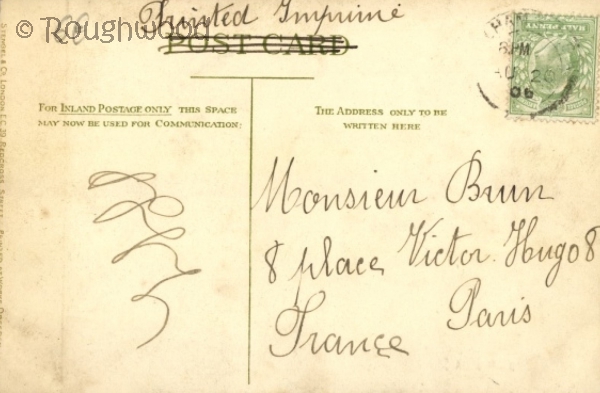 © Roughwood
Printed Imprimé
POST CARD
FOR INLAND POSTAGE ONLY THIS SPACE
MAY NOW BE USED FOR COMMUNICATION:
THE ADDRESS ONLY TO BE
WRITTEN HERE
HALF PENNY
PM
AU 26
06
Monsieur Brun
8 place Victor Hugo 8
Paris
France